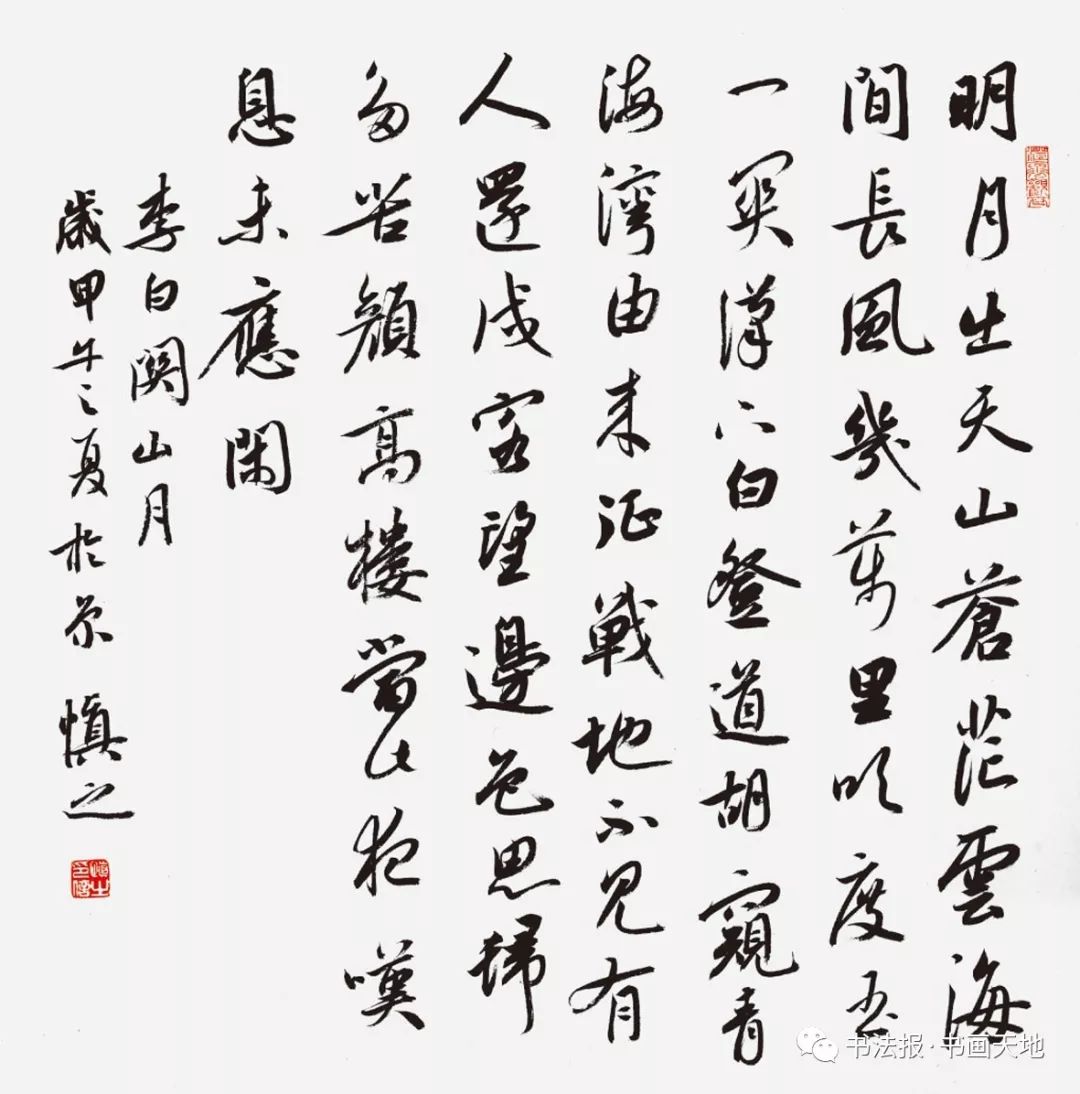 明月出天山蒼茫雲海
間長風幾萬里吹度玉
門關漢下白登道胡窺青
海灣由來征戰地不見有
人還戍客望邊色思歸
多苦顏高樓當此夜嘆
息未應閑
李白關山月
歲甲午之夏於京 慎之
慎之印信
书法报·书画天地